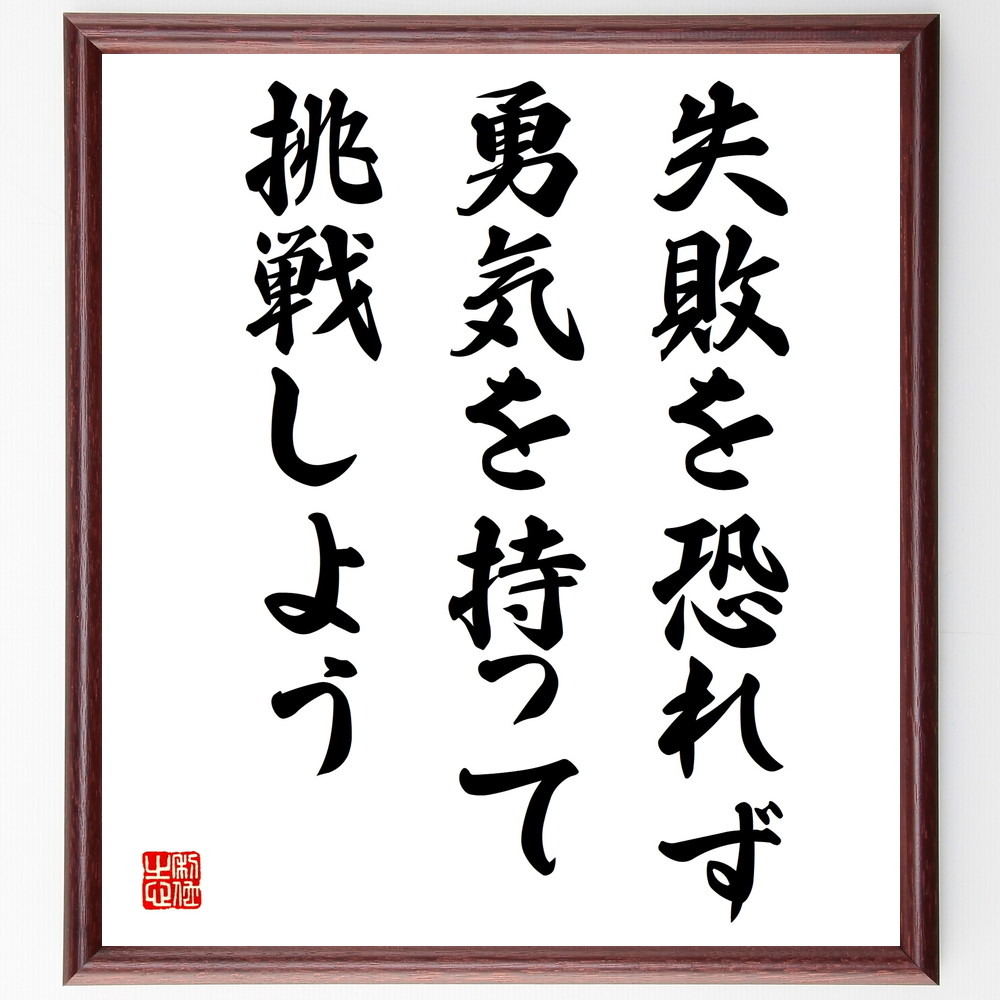 失敗を恐れず
勇気を持って
挑戦しよう